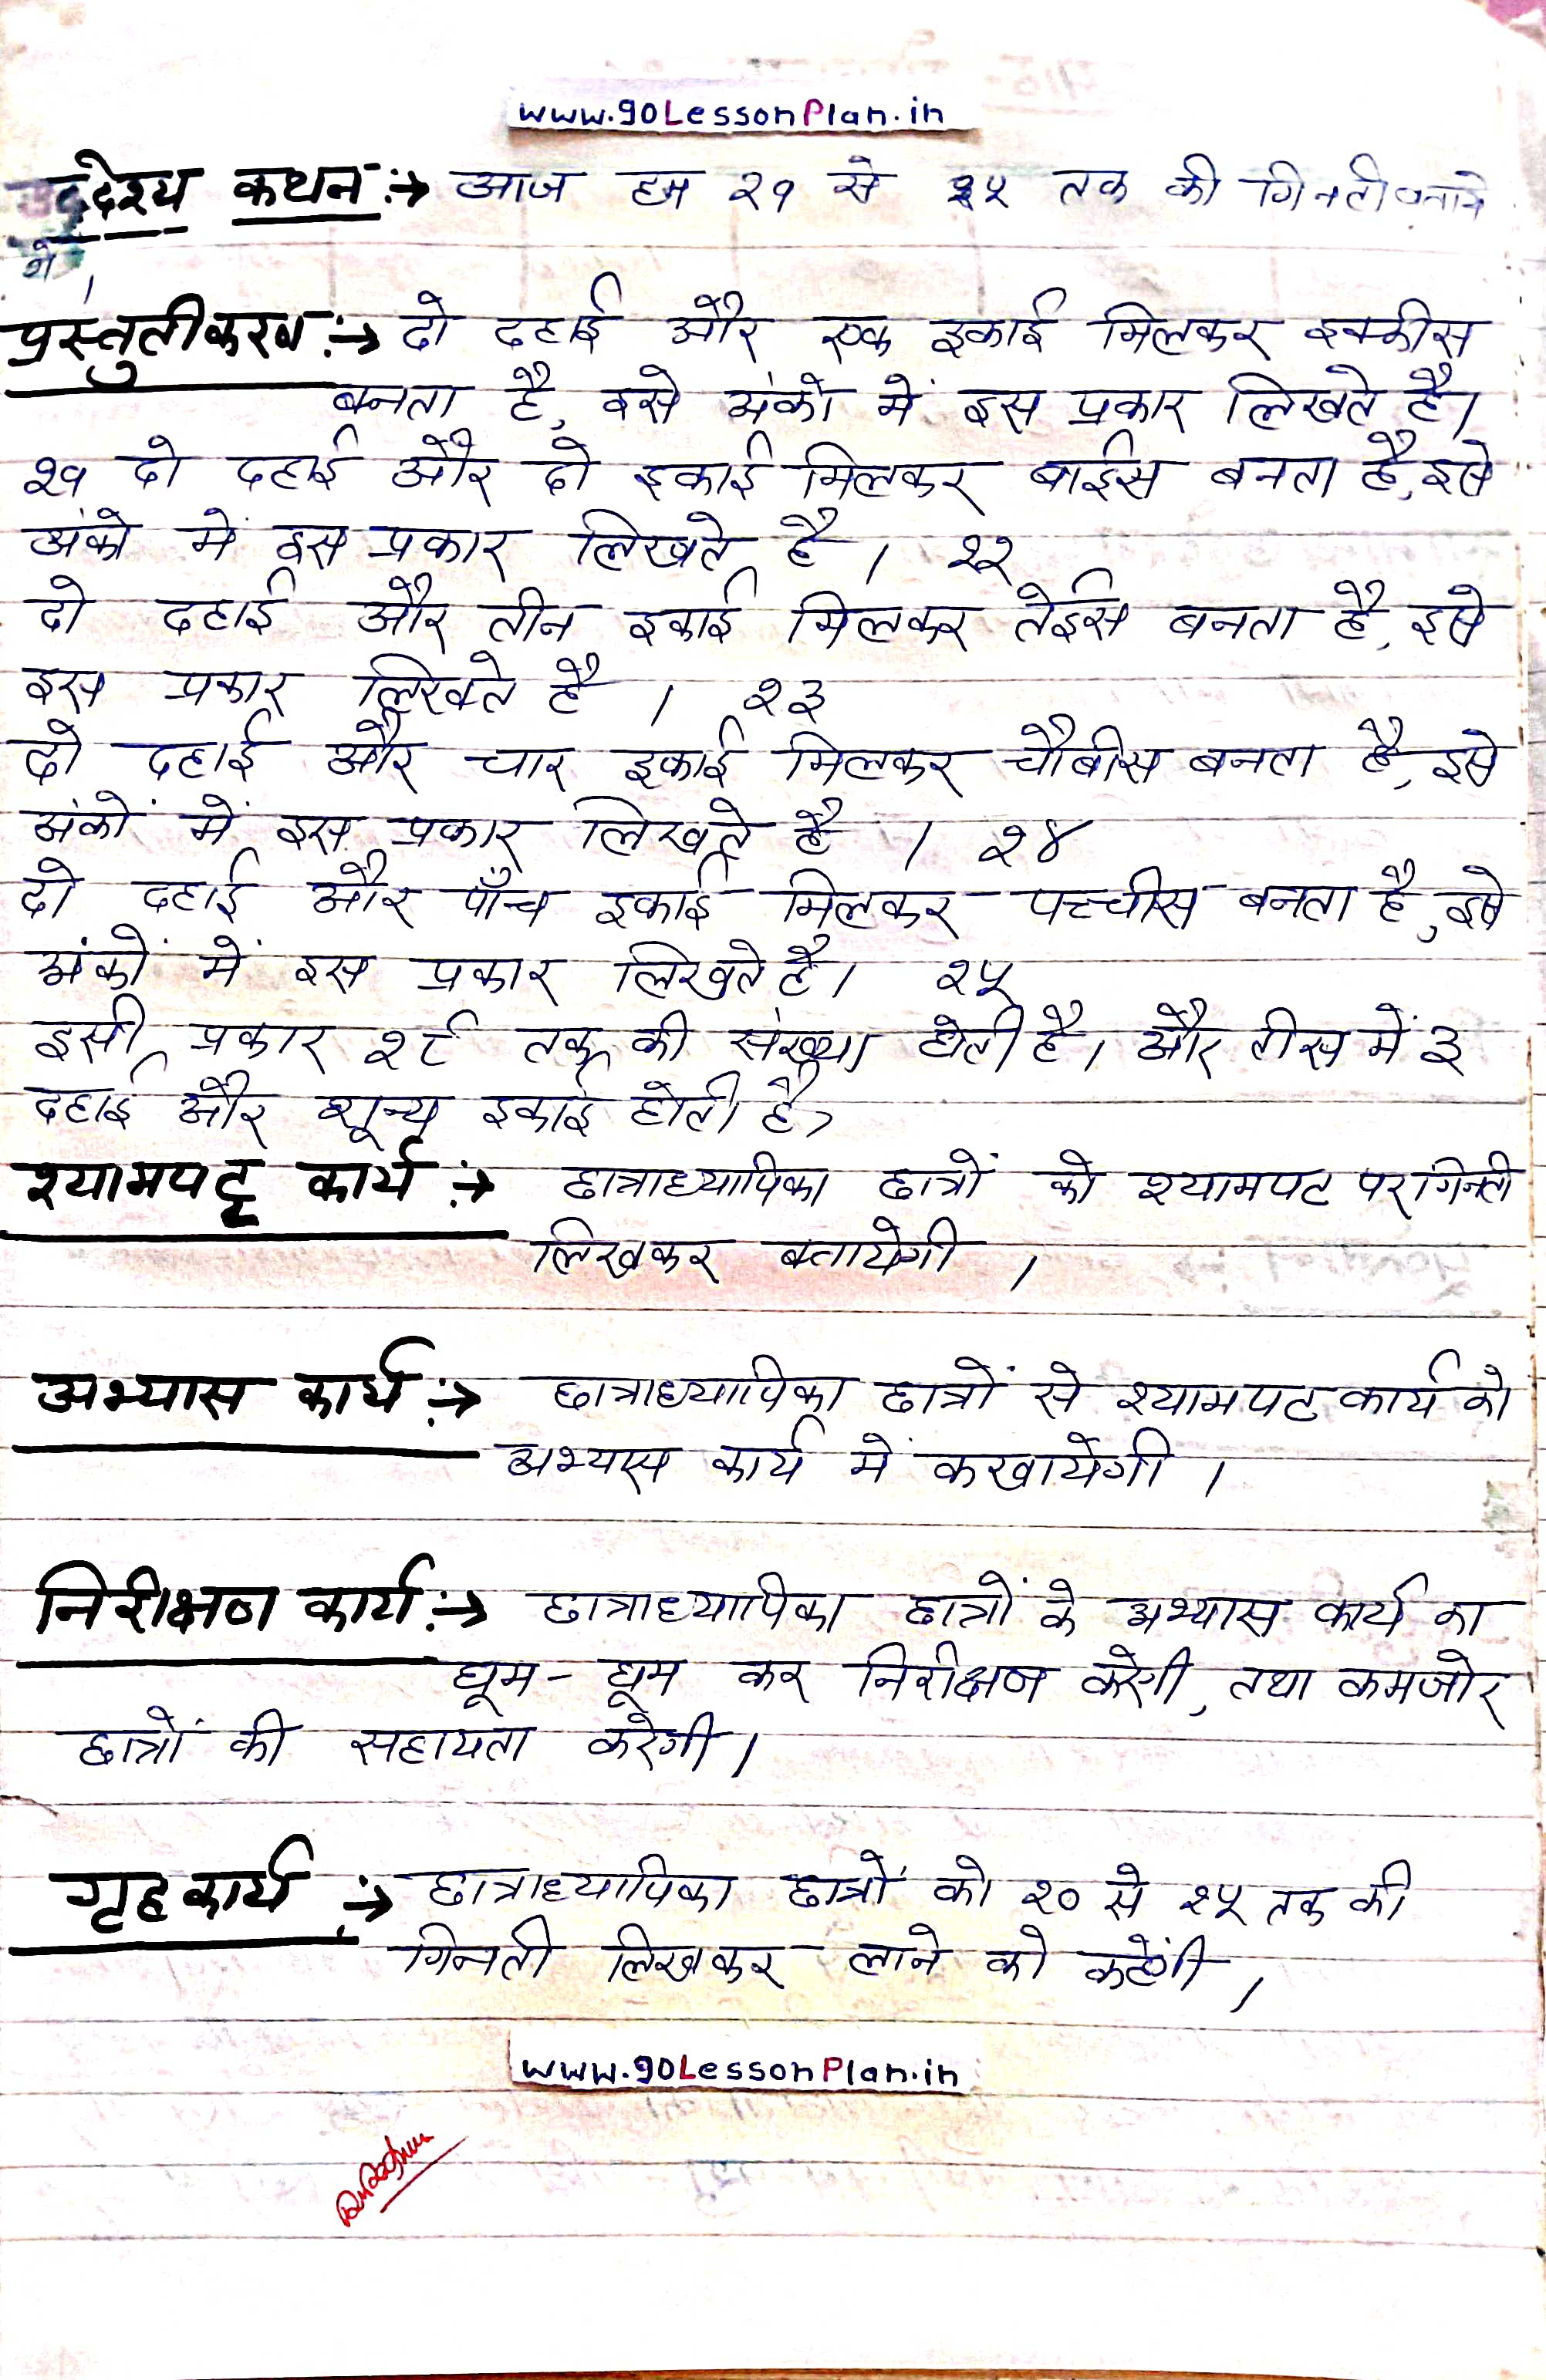 www.90LessonPlan.in
उद्देश्य कथन :→ आज हम २१ से २५ तक की गिनती
गे ।
प्रस्तुतीकरण :→ दो दहाई और एक इकाई मिलकर इक्कीस
बनता है, इसे अंको में इस प्रकार लिखते है।
२१ दो दहाई और दो इकाई मिलकर बाईस बनता है, इसे
अंको में इस प्रकार लिखते है । २२
दो दहाई और तीन इकाई मिलकर तेईस बनता है, इसे
इस प्रकार लिखते है । २३
दो दहाई और चार इकाई मिलकर चौबीस बनता है, इसे
अंकों में इस प्रकार लिखते है । २४
दो दहाई और पाँच इकाई मिलकर पच्चीस बनता है, इसे
अंकों में इस प्रकार लिखते है। २५
इसी प्रकार २९ तक की संख्या होती है। और तीस में ३
दहाई और शून्य इकाई होती है,
श्यामपट्ट कार्य :→ छात्राध्यापिका छात्रों को श्यामपट पर गिनती
लिखकर बतायेगी ।
अभ्यास कार्य :→ छात्राध्यापिका छात्रों से श्यामपट कार्य को
अभ्यास कार्य में करवायेगी ।
निरीक्षण कार्य :→ छात्राध्यापिका छात्रों के अभ्यास कार्य का
घूम - घूम कर निरीक्षण करेगी, तथा कमजोर
छात्रों की सहायता करेगी।
गृहकार्य :→ छात्राध्यापिका छात्रों को २० से २५ तक की
गिनती लिखकर लाने को कहेंगी ।
www.90LessonPlan.in